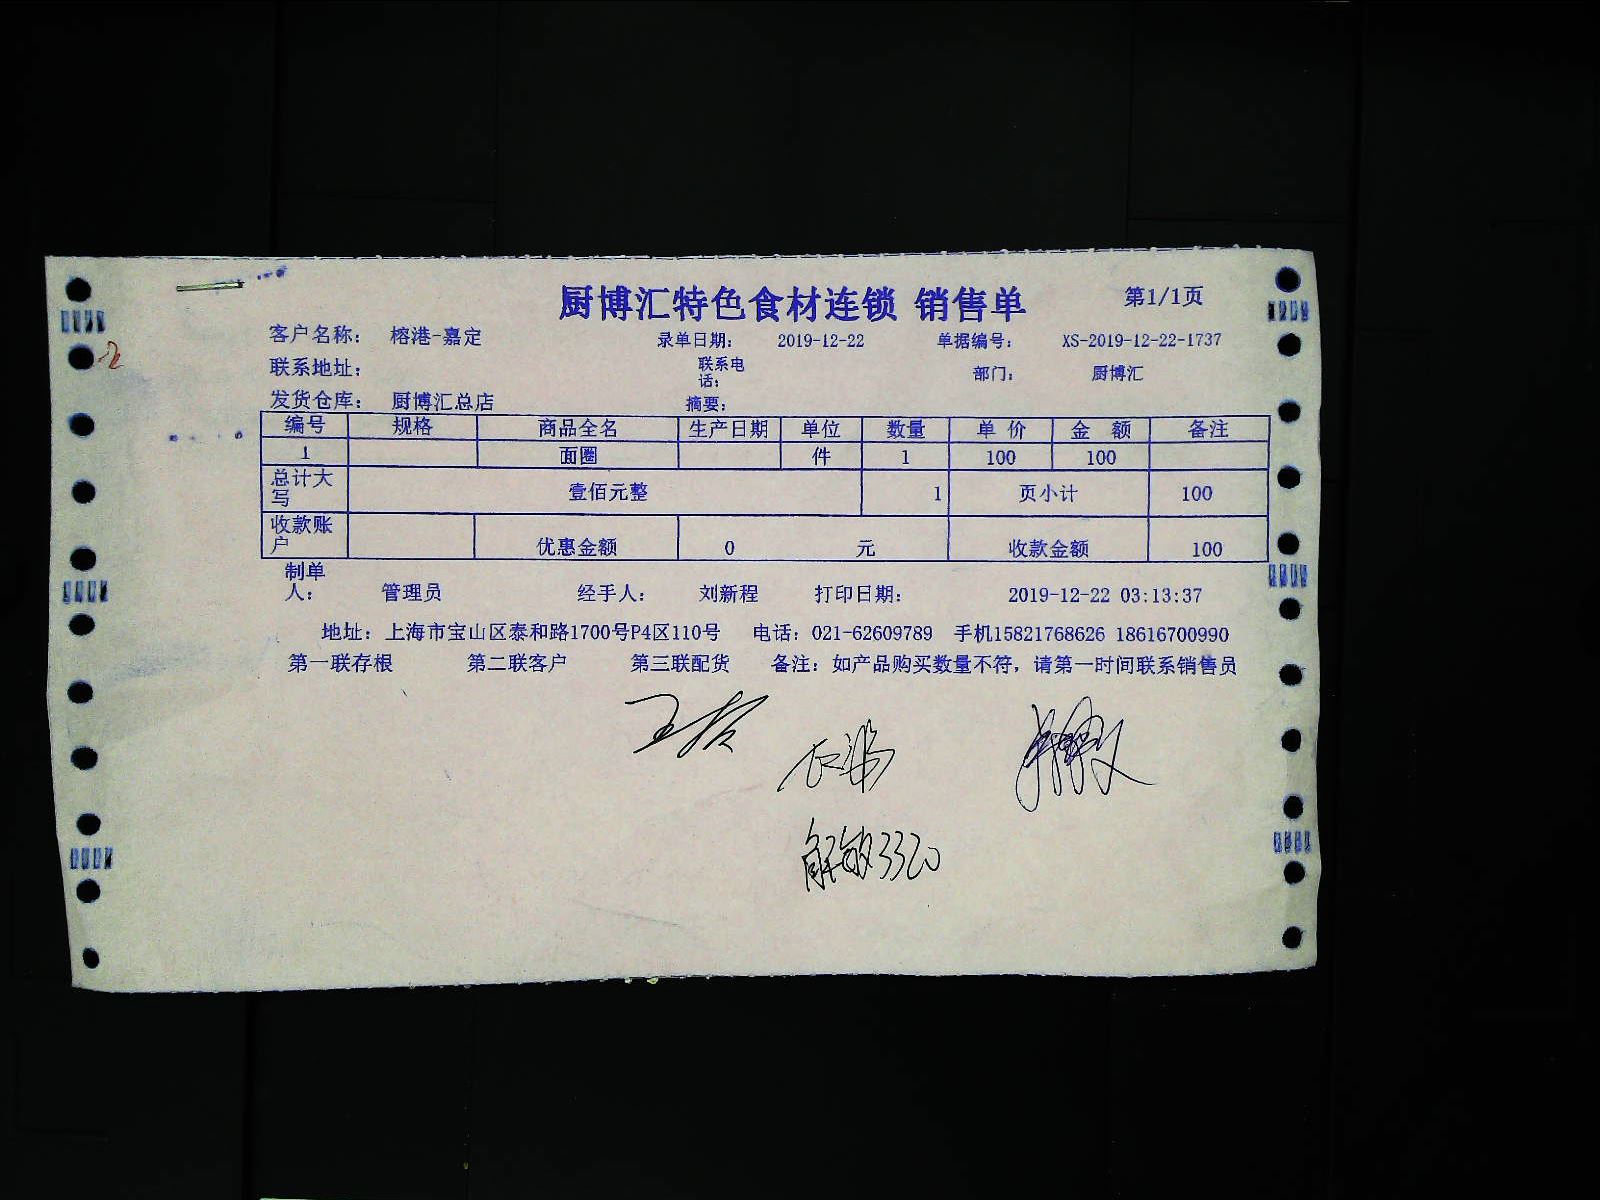 厨博汇特色食材连锁 销售单 第1/1页
客户名称： 榕港-嘉定 录单日期： 2019-12-22 单据编号： XS-2019-12-22-1737
联系地址： 联系电话： 部门： 厨博汇
发货仓库： 厨博汇总店 摘要：
编号 规格 商品全名 生产日期 单位 数量 单 价 金 额 备注
1 面圈 件 1 100 100
总计大写 壹佰元整 1 页小计 100
收款账户 优惠金额 0 元 收款金额 100
制单人： 管理员 经手人： 刘新程 打印日期： 2019-12-22 03:13:37
地址：上海市宝山区泰和路1700号P4区110号 电话：021-62609789 手机15821768626 18616700990
第一联存根 第二联客户 第三联配货 备注：如产品购买数量不符，请第一时间联系销售员
解敏3320